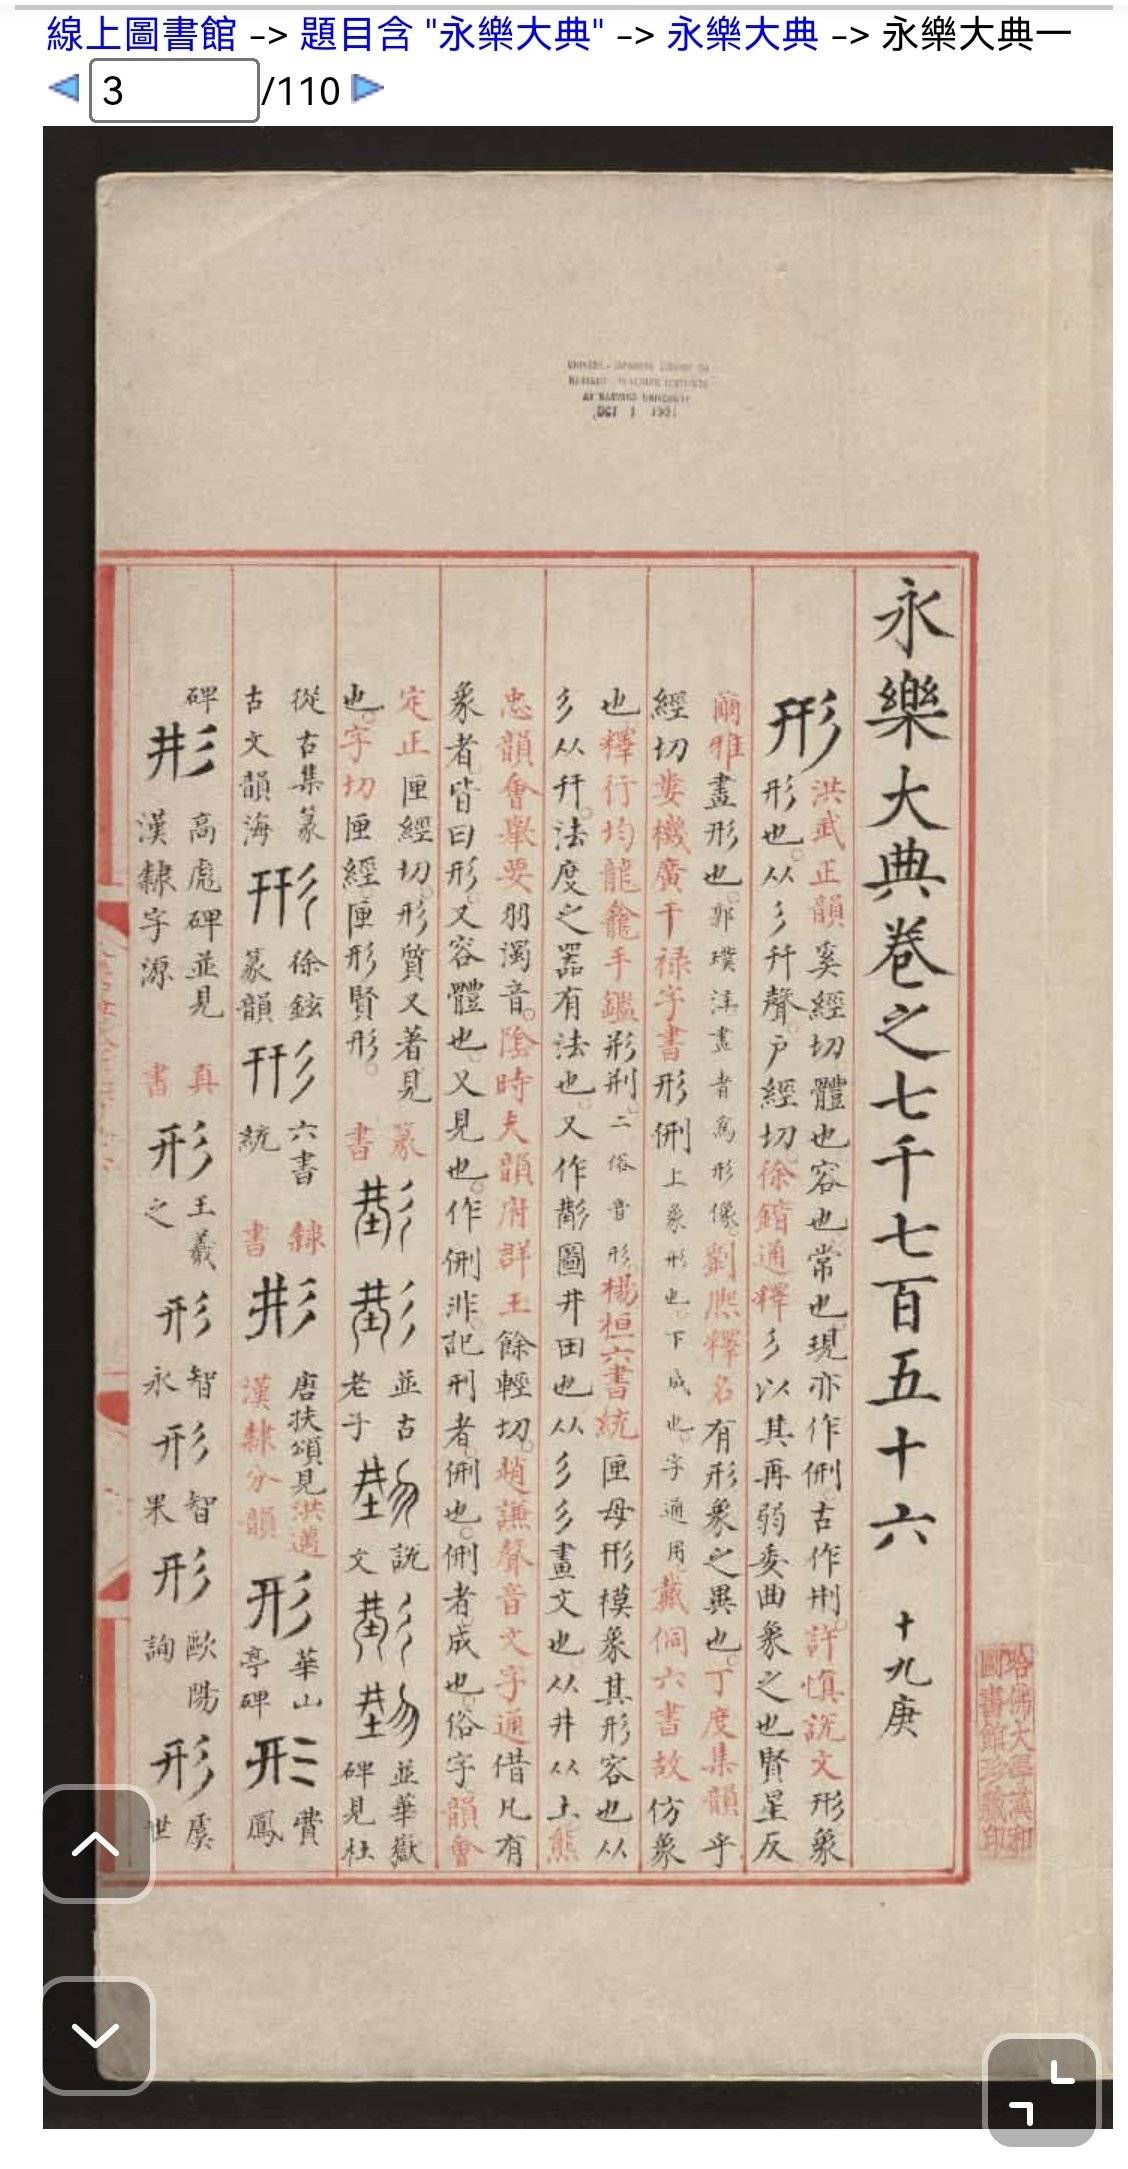 線上圖書館 -> 題目含 "永樂大典" -> 永樂大典 -> 永樂大典一
3 /110
OCT 1 193
永樂大典卷之七千七百五十六 十九庚
形
洪武正韻奚經切體也容也常也現亦作侀古作㓝許慎說文形象
形也从彡幵聲戶經切徐鍇通釋彡以其再弱委曲象之也賢星反
爾雅畫形也郭璞注畫者為形像劉熈釋名有形象之異也丁度集韻乎
經切婁機廣干禄字書形侀上象形也下成也字通用戴侗六書故仿象
也釋行均龍龕手鑑形㓝二俗音形楊桓六書統匣母形模象其形容也从
彡从幵法度之器有法也又作圖井田也从彡彡畫文也从井从土熊
忠韻會舉要羽濁音陰時夫韻府群玉餘輕切趙謙聲音文字通借凡有
象者皆曰形又容體也又見也作侀非記刑者侀也侀者成也俗字韻會
定正匣經切形質又著見
也字切匣經匣形賢形
篆書
並古老子
說文
並華嶽碑見杜
從古集篆古文韻海
形
徐鉉篆韻
形
六書統
隸書
形
唐扶頌見洪邁漢隸分韻
形
華山亭碑
形
費鳳
碑
形
高彪碑並見漢隸字源
真書
形
王羲之
形
智永
形
智果
形
歐陽詢
形
虞世
哈佛大學漢和圖書館珍藏印